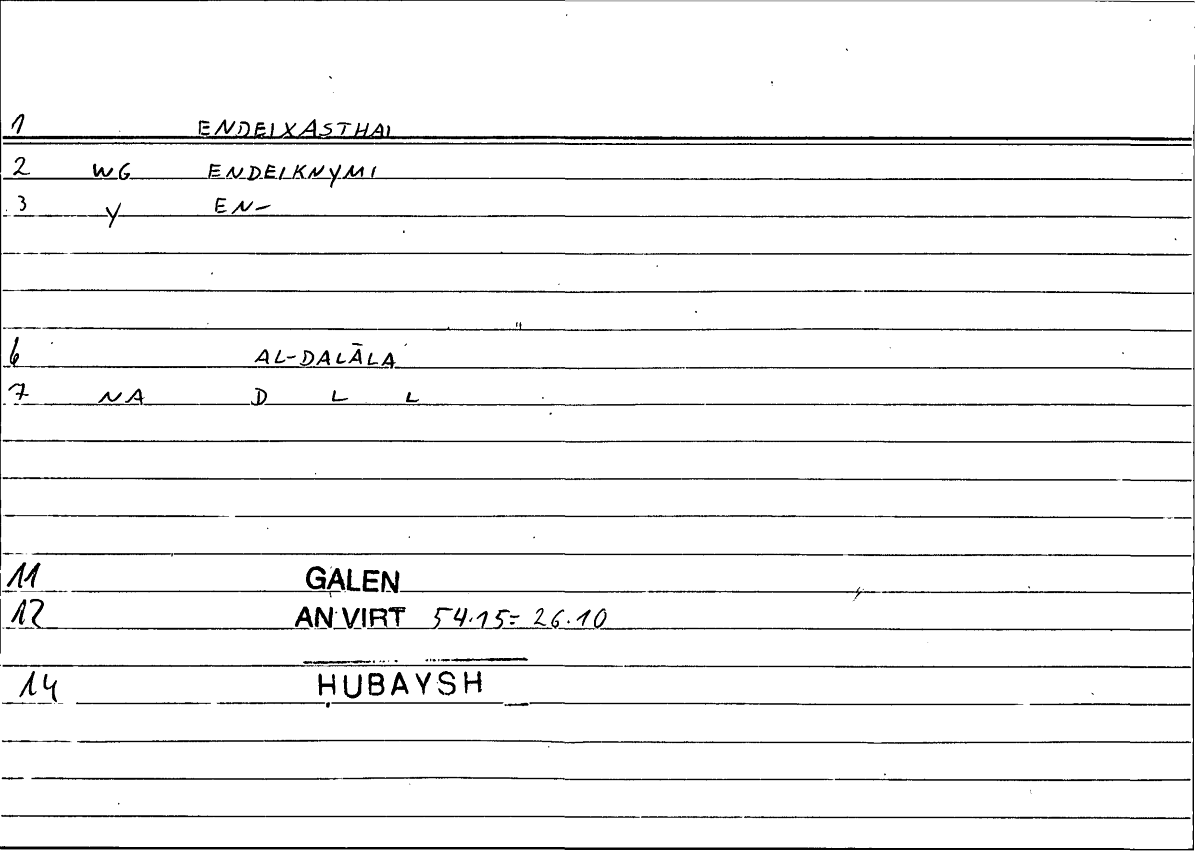 1 ENDEIXASTHAI
2 WG ENDEIKNYMI
3 Y EN-
6 AL-DALĀLA
7 NA D L L
11 GALEN
12 AN VIRT 54.15= 26.10
14 HUBAYSH